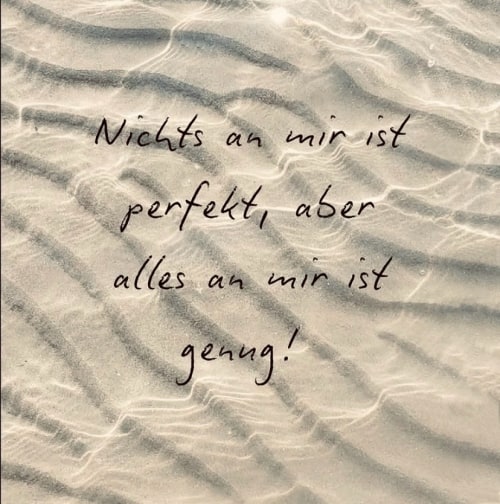 Nichts an mir ist
perfekt, aber
alles an mir ist
genug!